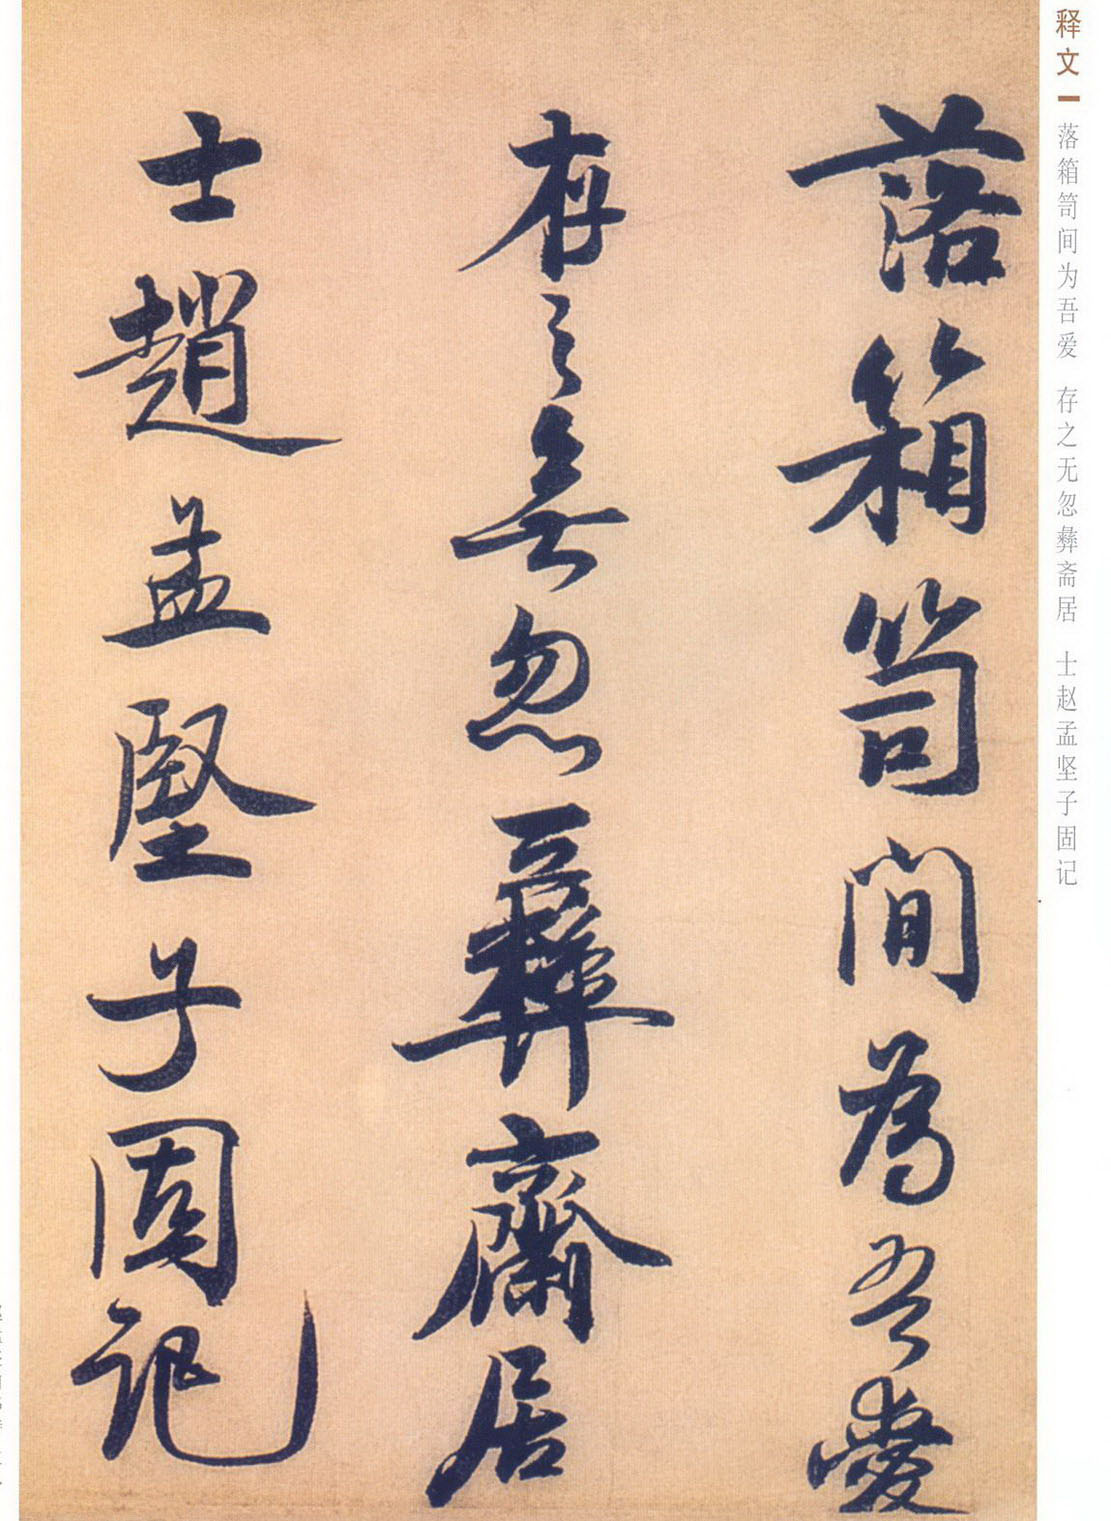 释文
落箱笥间为吾爱 存之无忽彝斋居 士赵孟坚子固记
落箱笥間為吾愛
存之無忽彝齋居
士趙孟堅子固記